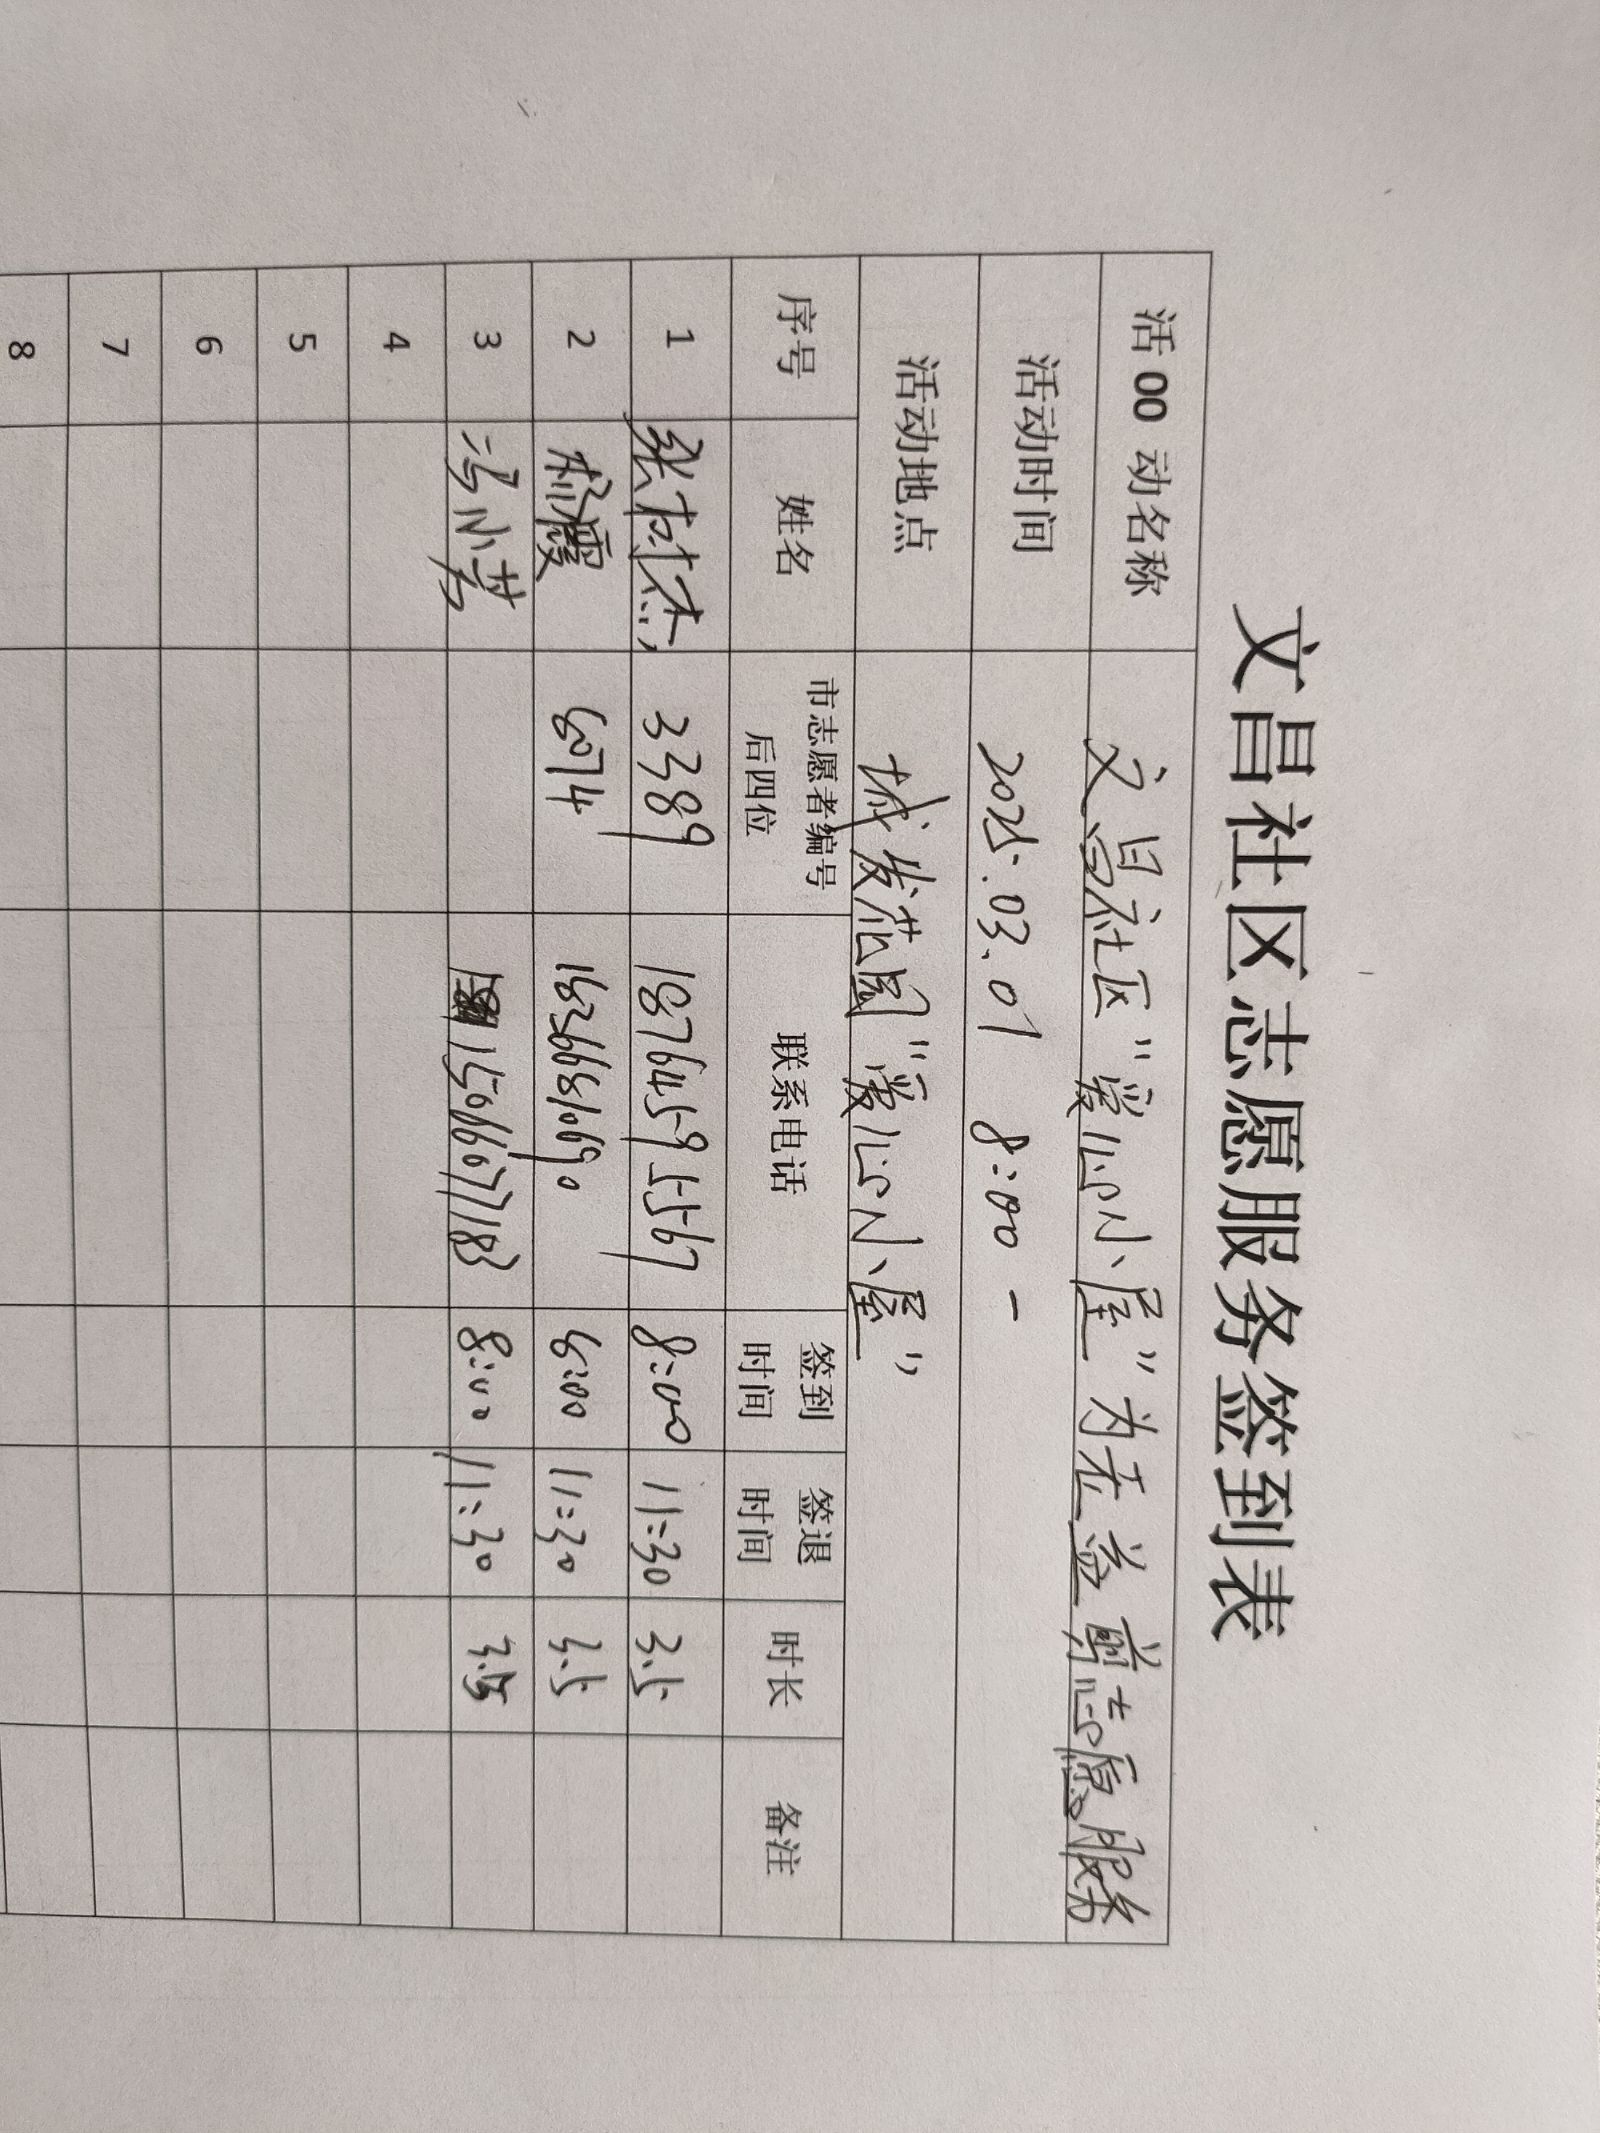 文昌社区志愿服务签到表
活 00 动名称 文昌社区“爱心小屋”为在益剪志愿服务
活动时间 2025.03.01 8:00 -
活动地点 城发花园“爱心小屋”
序号 姓名 市志愿者编号后四位 联系电话 签到时间 签退时间 时长 备注
1 张树杰 3389 18764595567 8:00 11:30 3.5
2 霞 8074 18:00 11:30 3.5
3 冯小 15066077183 8:00 11:30 3.5
4
5
6
7
8